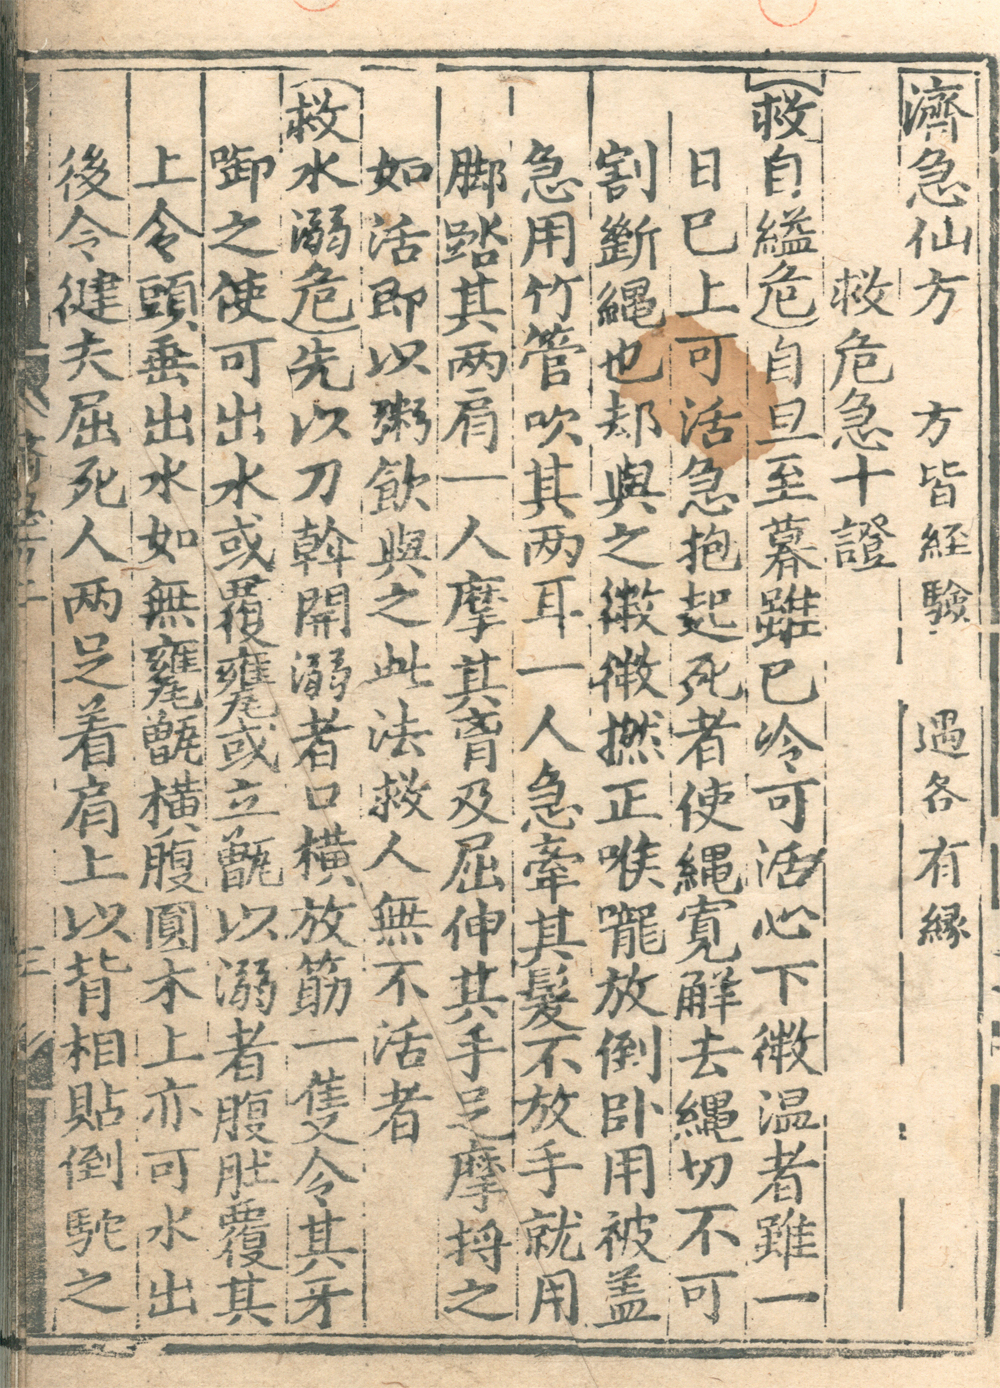 濟急仙方 方皆經驗 遇各有縁
救危急十證
救自縊危自旦至暮雖已冷可活心下微温者雖一
日已上可活急抱起死者使繩寛解去繩切不可
割斷繩也却與之微微撚正喉嚨放倒卧用被盖
急用竹管吹其两耳一人急牽其髮不放手就用
脚踏其两肩一人摩其胷及屈伸其手足摩捋之
如活即以粥飲與之此法救人無不活者
救水溺危先以刀斡開溺者口横放筯一隻令其牙
啣之使可出水或覆甕或立甑以溺者腹肚覆其
上令頭垂出水如無甕甑横腹圓木上亦可水出
後令健夫屈死人两足着肩上以背相貼倒駝之